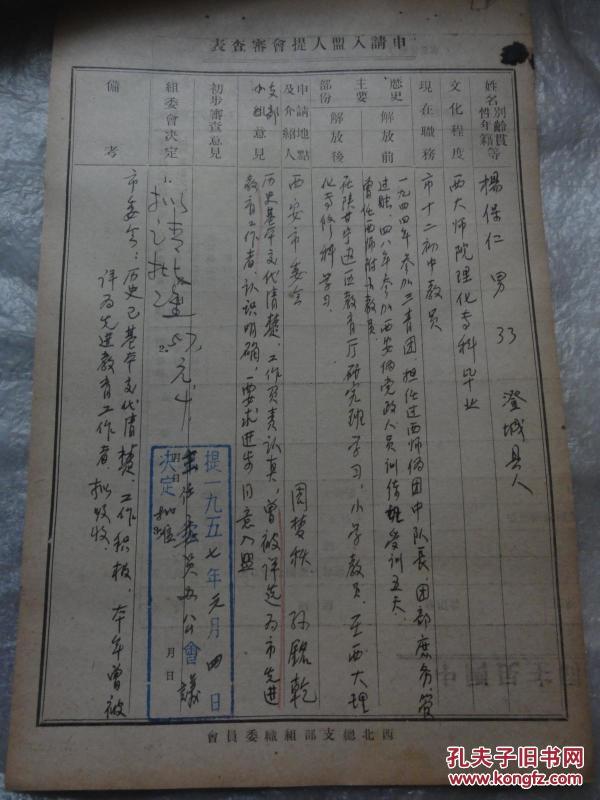 申請入盟人提會審查表
姓名別齡貫等性年籍
楊保仁 男 33 澄城县人
文化程度
西大师院理化专科毕业
現在職務
市十二初中教員
歷史主要部份
解放前
一九四四年参加三青团.担任过西师伪团中队长.团部庶务.管
过账.四八年参加西安伪党政人员训练班受训五天.
曾任西师附小教員.
解放後
在陕甘宁边区教育厅研究班学习.小学教員.至西大理
化专修科学习.
申請地點及介紹人
西安市委会 周梦秩 孙铭乾
支部小组意見
历史基本交代清楚.工作负责认真.曾被评选为市先进
教育工作者.认识明确.要求进步同意入盟
初步審查意見
拟请批准
組委會決定
提一九五七年元月四日
委员办公會議
決定 批准
月 日
備考
市委会:历史已基本交代清楚.工作积极.本年曾被
评为先进教育工作者.拟吸收.
西北總支部組織委員會
孔夫子旧书网
www.kongfz.com